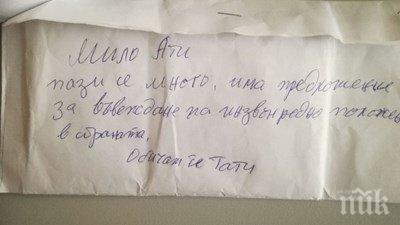 Мило Ати
пази се много, има предложение
за въвеждане на извънредно положен
в страната.
Обичам те Тати
ПИК